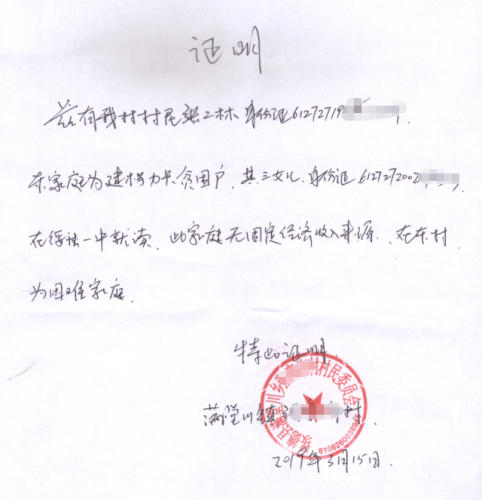 证明
兹有我村村民张二林 身份证61272719
系家庭为建档立卡贫困户,其三女儿,身份证61272002
在绥德一中就读,此家庭无固定经济收入来源,在本村
为困难家庭.
特此证明
满堂川镇 村.
川乡 村民委员会
2019年3月15日.